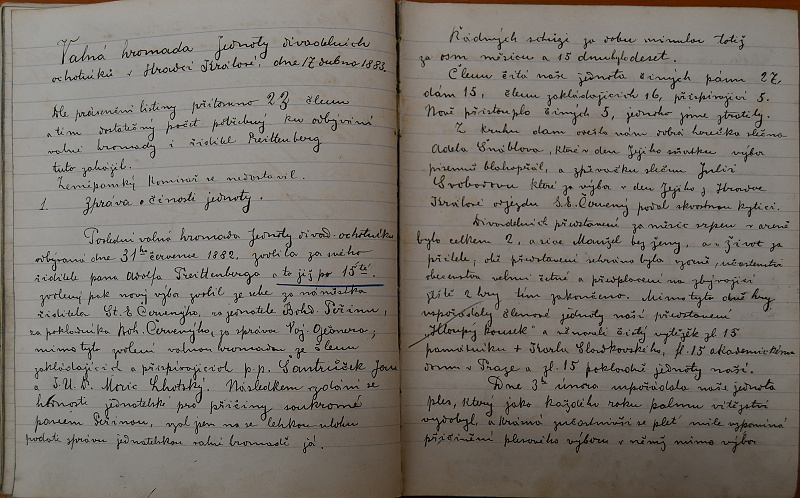 Valná hromada Jednoty divadelních
ochotníků v Hradci Králové, dne 17 dubna 1883.
Dle presenční listiny přítomno 22 členů
a tím dostatečný počet potřebný ku odbývání
valné hromady i ředitel Preittenberg
tuto zahájil.
Zeměpanský komisař se nedostavil.
1. Zpráva o činosti jednoty.
Poslední valná hromada Jednoty divad. ochotníků
odbývaná dne 31ho července 1882, zvolila za svého
ředitele pana Adolfa Preittenberga a to již po 15té.
zvolený pak nový výbor zvolil ze sebe za náměstka
ředitele St. E Červeného, za jednatele Bohd. Peřinu,
za pokladníka Boh. Červenýho, za správce Voj.
mimo tyto zvoleni valnou hromadou ze členů
zakládajících a přispívajících p.p. Šantrůček Jan
a J.U.D. Moric Lhotský. Následkem vzdání se
hodnosti jednatelské pro příčiny soukromé
panem Peřinou, vzal jsem na se lehkou úlohu
podati zprávu jednatelskou valné hromadě já.
Řádných schůzí za dobu minulou totiž
za osm měsíců a 15 dnů bylo deset.
Členů čítá naše jednota činných pánů 27,
dam 15, členů zakládajících 16, přispívající 5.
Nově přistouplo činných 5, jednoho jsme ztratily.
Z kruhu dam odešla nám dobrá herečka slečna
Adela Šnoblova, které v den Jejího sňatku výbor
písemně blahopřál, a zpěvačka slečna Julie
Svobodova které za výbor v den Jejího z Hradce
Králové odjezdu S.E. Červený podal skvostnou kytici.
Divadelních představení za měsíc srpen v areně
bylo celkem 2, a sice Manžel bez ženy, a Život za
přítele, obě představení sehrána byla vzorně, účastenství
obecenstva velmi četné a předplacení na zbývající
ještě 2 hry tím zakončeno. Mimo tyto dvě hry
uspořádaly členové jednoty naší představení
„Hloupý kousek" a věnovali čistý výtěžek zl. 15
památníku + Karla Sladkovského, zl. 15 akademickému
domu v Praze a zl. 15 pokladně jednoty naší.
Dne 3ho února uspořádala naše jednota
ples, který jako každého roku palmu vítězství
vydobyl, a krásná pleť mile vzpomíná
přičinění plesového výboru v němž mimo výbor